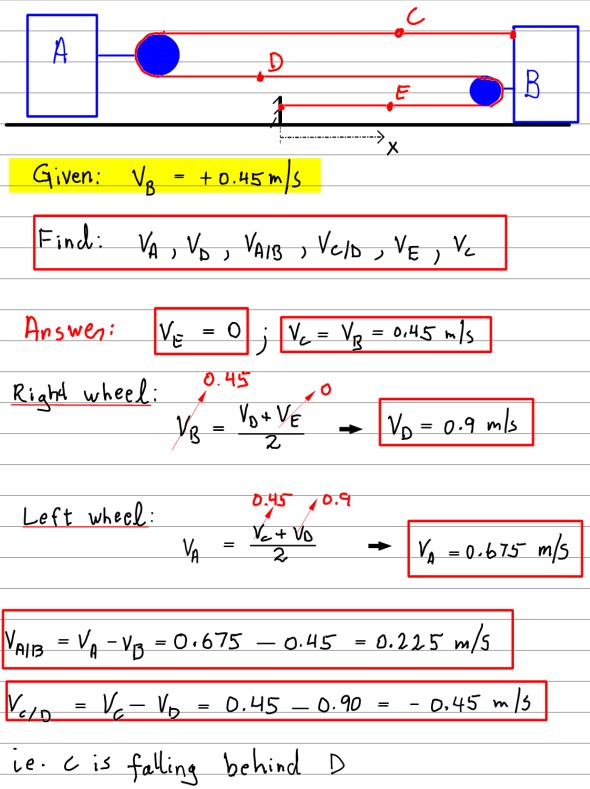 C
A
D
B
E
x
Given: V_B = +0.45 m/s
Find: V_A , V_D , V_A/B , V_C/D , V_E , V_C
Answer: V_E = 0 ; V_C = V_B = 0.45 m/s
Right wheel: 0.45 0
V_B = (V_D + V_E)/2 → V_D = 0.9 m/s
Left wheel: 0.45 0.9
V_A = (V_C + V_D)/2 → V_A = 0.675 m/s
V_A/B = V_A - V_B = 0.675 - 0.45 = 0.225 m/s
V_C/D = V_C - V_D = 0.45 - 0.90 = - 0.45 m/s
i.e. C is falling behind D